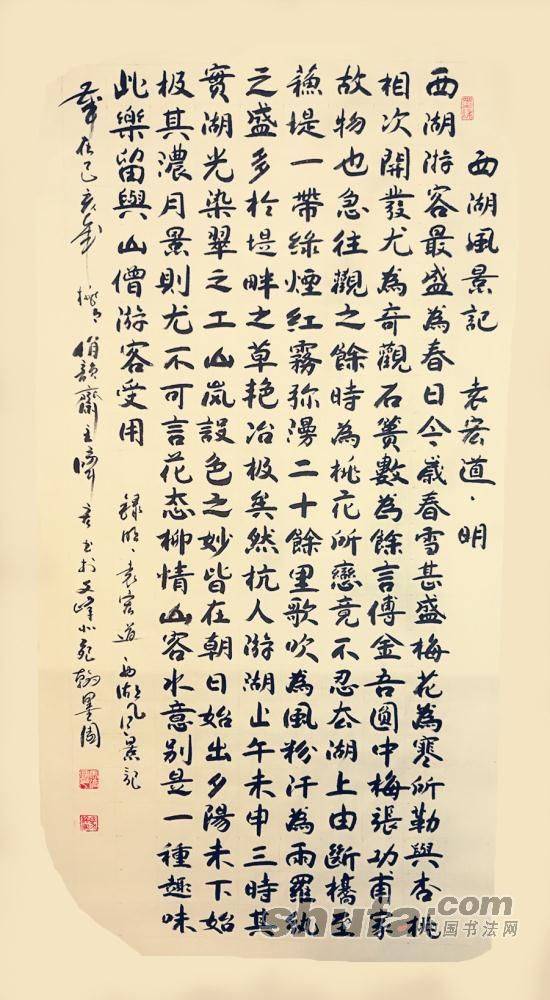 西湖風景記 袁宏道·明
西湖游客最盛為春日今歲春雪甚盛梅花為寒所勒與杏桃
相次開發尤為奇觀石簣數為餘言傅金吾圓中梅張功甫家
故物也急往觀之餘時為桃花所戀竟不忍去湖上由斷橋至
蘓堤一帶綠煙紅霧弥漫二十餘里歌吹為風粉汗為雨羅紈
之盛多於堤畔之草艳冶极矣然杭人游湖止午未申三時其
實湖光染翠之工山嵐設色之妙皆在朝日始出夕陽未下始
极其濃月景則尤不可言花态柳情山容水意别是一種趣味
此樂留與山僧游客受用
錄明·袁宏道·西湖風景記
歲在己亥年桃月俏韻齋主君書於文峰小苑翰墨園
shufa.com
中国书法网